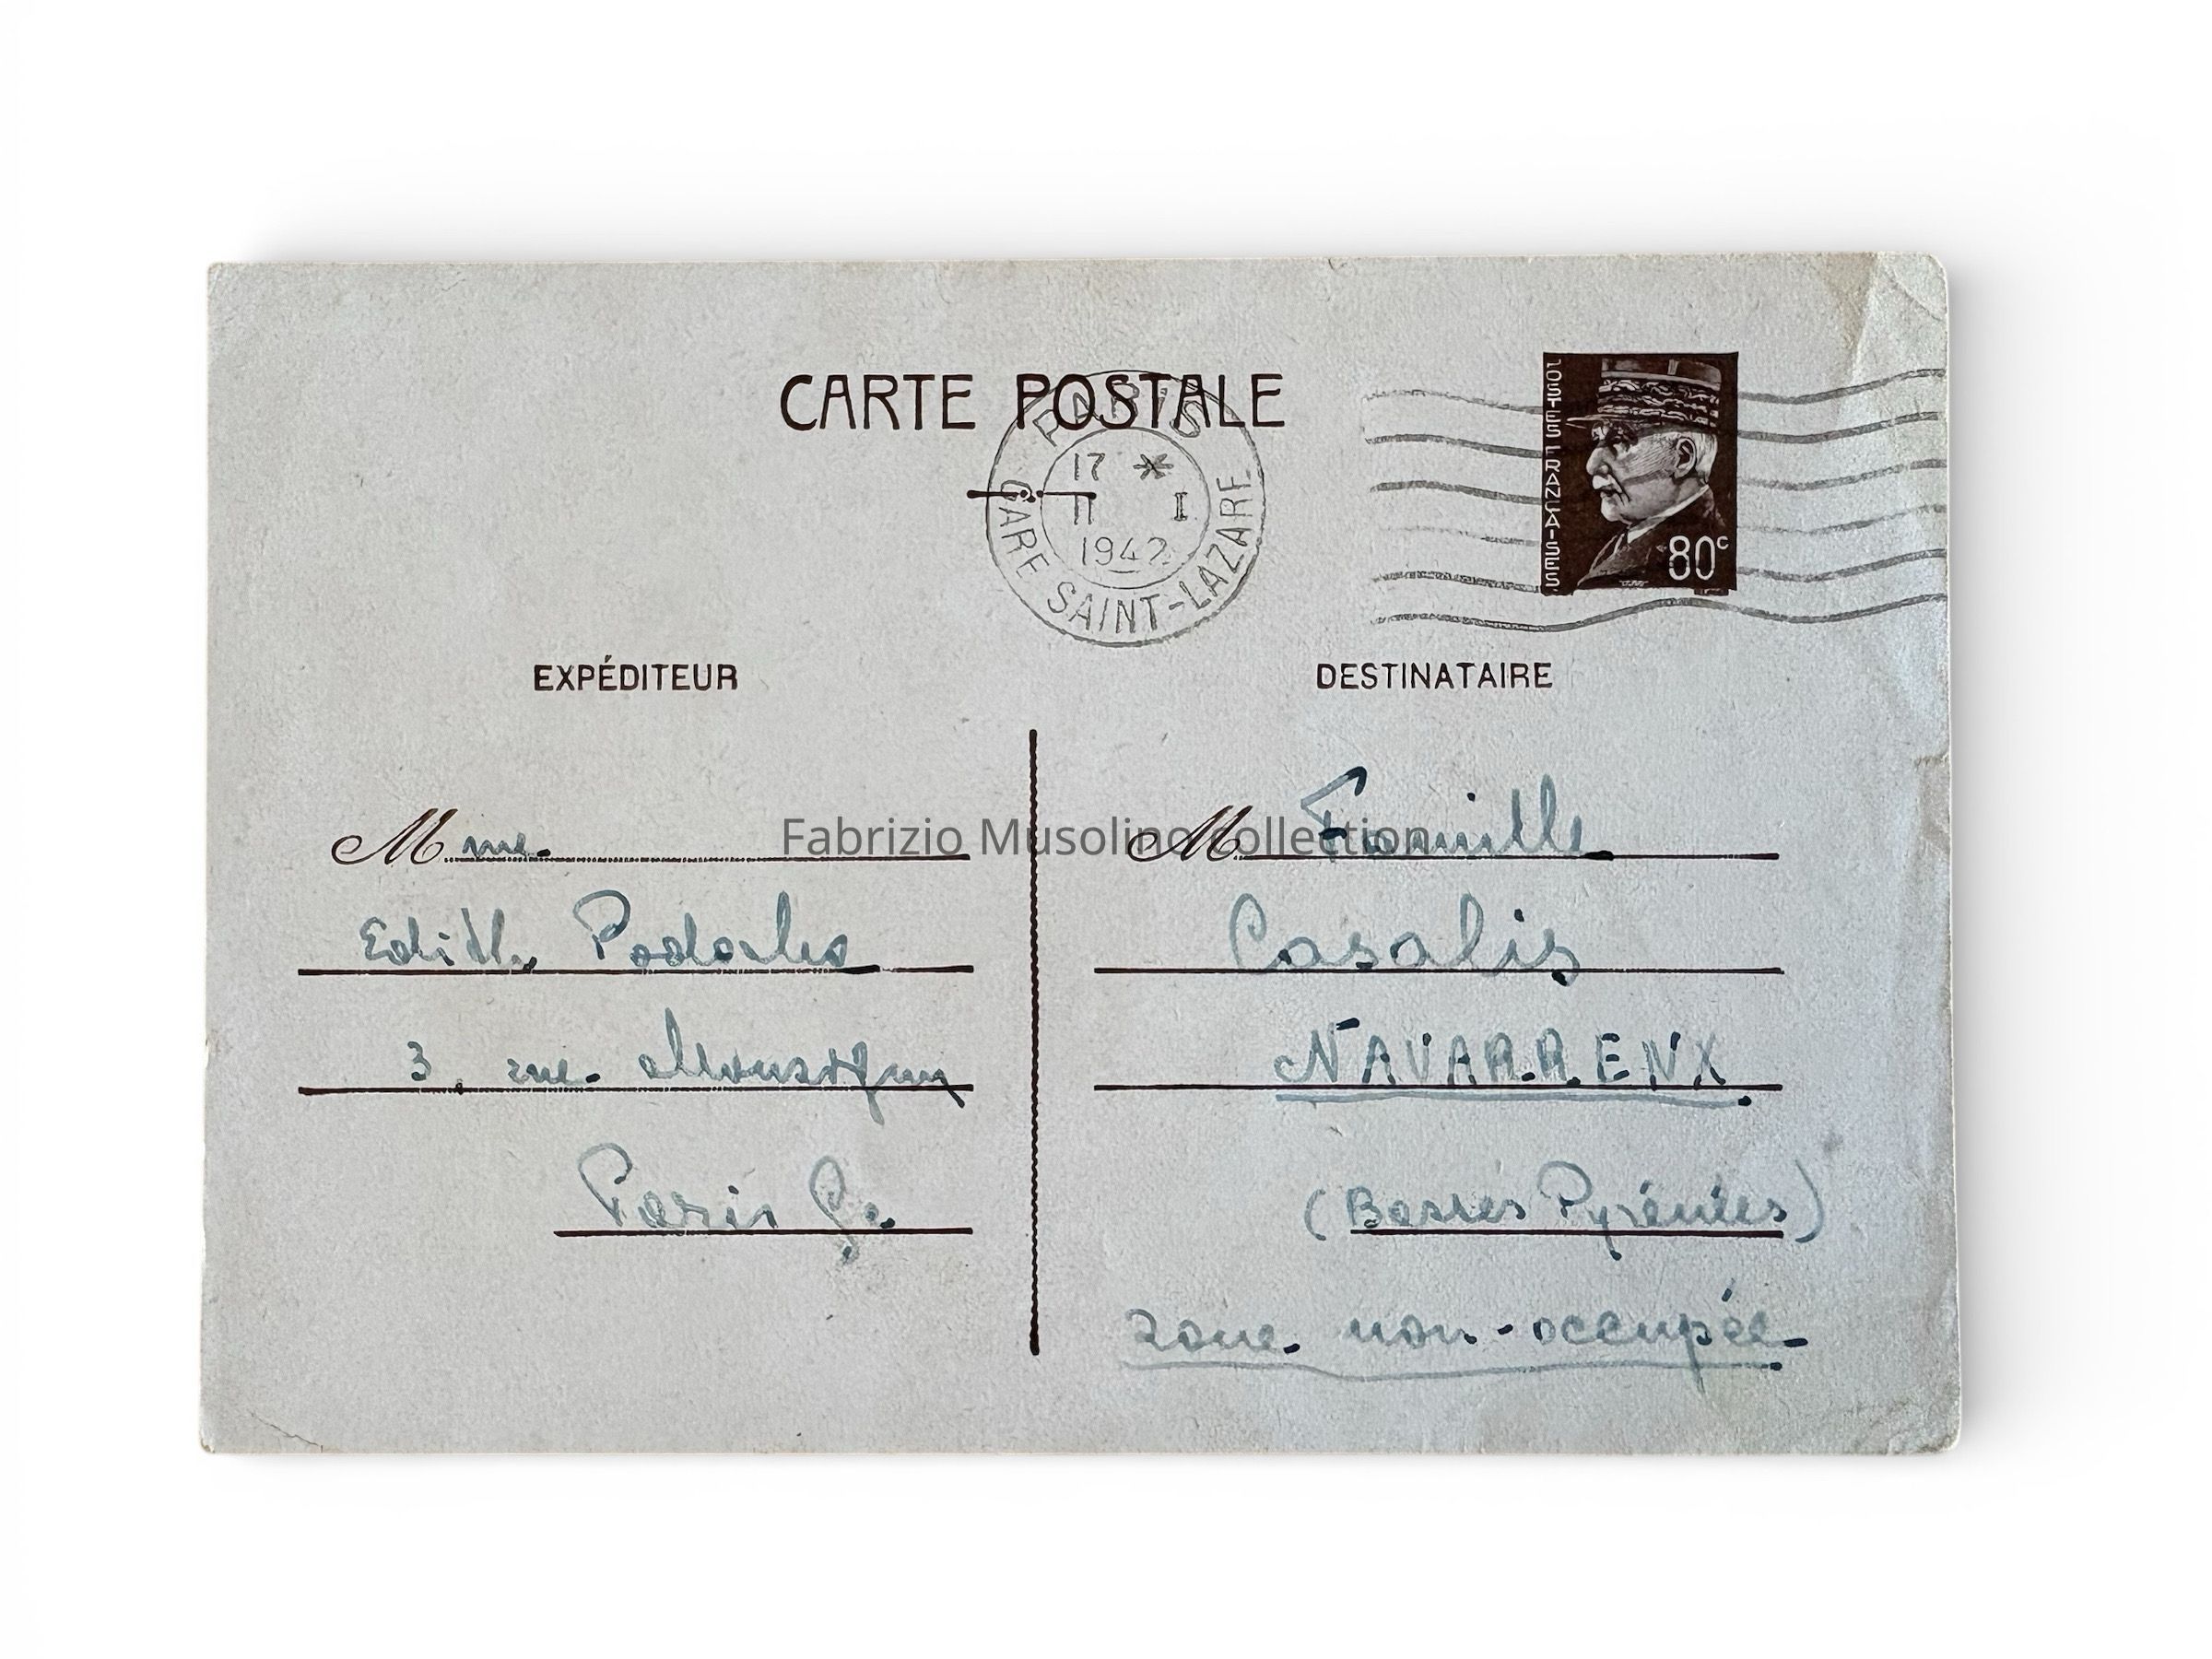 CARTE POSTALE
PARIS
17 *
11 I
1942
GARE SAINT-LAZARE
POSTES FRANÇAISES
80c
EXPÉDITEUR
Mme
Edith
3, rue
Paris 9e
DESTINATAIRE
M Famille
Casalis
NAVARRENX
(Basses Pyrénées)
zone non-occupée
Fabrizio Musolino collection